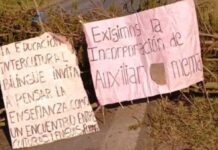 LA EDUCACIÓN
INTERCULTURAL
BILINGUE INVITA
A PENSAR LA
ENSEÑANZA COMO
UN ENCUENTRO ENTRE
Exigimos la
Incorporación de
Auxiliar